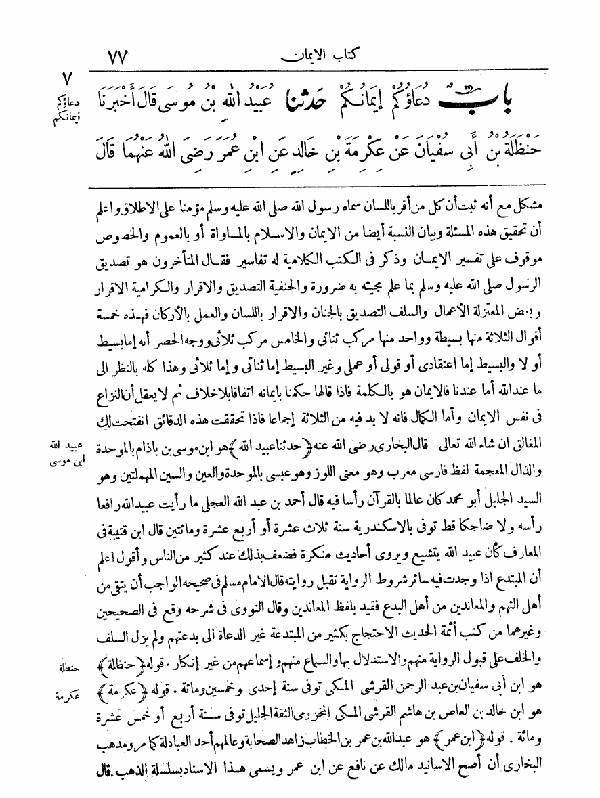 كتاب الايمان ٧٧
٧
باب دعاؤكم إيمانكم حدثنا عبيد الله بن موسى قال أخبرنا
دعاؤكم ايمانكم
حنظلة بن أبي سفيان عن عكرمة بن خالد عن ابن عمر رضي الله عنهما قال
مشكل مع أنه ثبت أن كل من أقر باللسان سماه رسول الله صلى الله عليه وسلم مؤمنا على الاطلاق واعلم
أن تحقيق هذه المسئلة وبيان النسبة أيضا من الايمان والاسلام بالمساواة أو بالعموم والخصوص
موقوف على تفسير الايمان وذكر في الكتب الكلامية له تفاسير فقال المتأخرون هو تصديق
الرسول صلى الله عليه وسلم بما علم مجيئه به ضرورة والحنفية التصديق والاقرار والكرامية الاقرار
وبعض المعتزلة الأعمال والسلف التصديق بالجنان والاقرار باللسان والعمل بالأركان فهذه خمسة
أقوال الثلاثة منها بسيطة وواحد منها مركب ثنائي والخامس مركب ثلاثي ووجه الحصر أنه إما بسيط
أو لا والبسيط إما اعتقادي أو قولي أو عملي وغير البسيط إما ثنائي وإما ثلاثي وهذا كله بالنظر الى
ما عند الله أما عندنا فالايمان هو بالكلمة فاذا قالها حكمنا بايمانه اتفاقا بلاخلاف ثم لا يعقل أن النزاع
في نفس الايمان وأما الكمال فانه لا بد فيه من الثلاثة إجماعا فاذا تحققت هذه الدقائق انفتحت لك
المغالق ان شاء الله تعالى قال البخاري رضي الله عنه ﴿حدثنا عبيد الله﴾ هو ابن موسى بن باذام بالموحدة
عبيد الله
ابن موسى
والذال المعجمة لفظ فارسي معرب وهو معنى اللوز وهو عبسي بالموحدة والعين والسين المهملتين وهو
السيد الجليل أبو محمد كان عالما بالقرآن رأسا فيه قال أحمد بن عبد الله العجلي ما رأيت عبيد الله رافعا
رأسه ولا ضاحكا قط توفي بالاسكندرية سنة ثلاث عشرة أو أربع عشرة ومائتين قال ابن قتيبة في
المعارف كأن عبيد الله يتشيع ويروى أحاديث منكرة فضعف بذلك عند كثير من الناس وأقول اعلم
أن المبتدع اذا وجدت فيه سائر شروط الرواية تقبل روايته قال الامام مسلم في صحيحه الواجب أن يتقى من
أهل التهم والمعاندين من أهل البدع فقيد بلفظ المعاندين وقال النووي في شرحه وقع في الصحيحين
وغيرهما من كتب أئمة الحديث الاحتجاج بكثير من المبتدعة غير الدعاة الى بدعتهم ولم يزل السلف
والخلف على قبول الرواية منهم والاستدلال بها والسماع منهم وإسماعهم من غير إنكار . قوله ﴿حنظلة﴾
حنظلة
هو ابن أبي سفيان بن عبد الرحمن القرشي المكي توفي سنة إحدى وخمسين ومائة . قوله ﴿عكرمة﴾
عكرمة
هو ابن خالد بن العاص بن هاشم القرشي المكي المخزومي الثقة الجليل توفي سنة أربع أو خمس عشرة
ومائة . قوله ﴿ابن عمر﴾ هو عبدالله بن عمر بن الخطاب زاهد الصحابة وعالمهم أحد العبادلة كما مر ومذهب
البخاري أن أصح الاسانيد مالك عن نافع عن ابن عمر ويسمى هذا الاسناد بسلسلة الذهب. قال